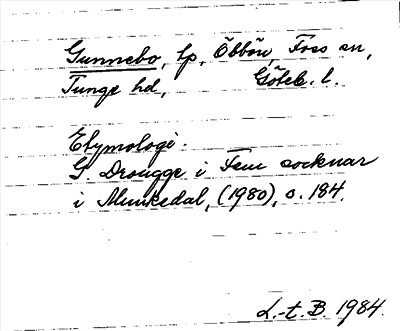 Gunnebo, tp, Öbbön, Foss sn,
Tunge hd, Göteb. l.
Etymologi.
G. Drougge i Fem socknar
i Munkedal, (1980), s. 184.
L.-t. B. 1984.